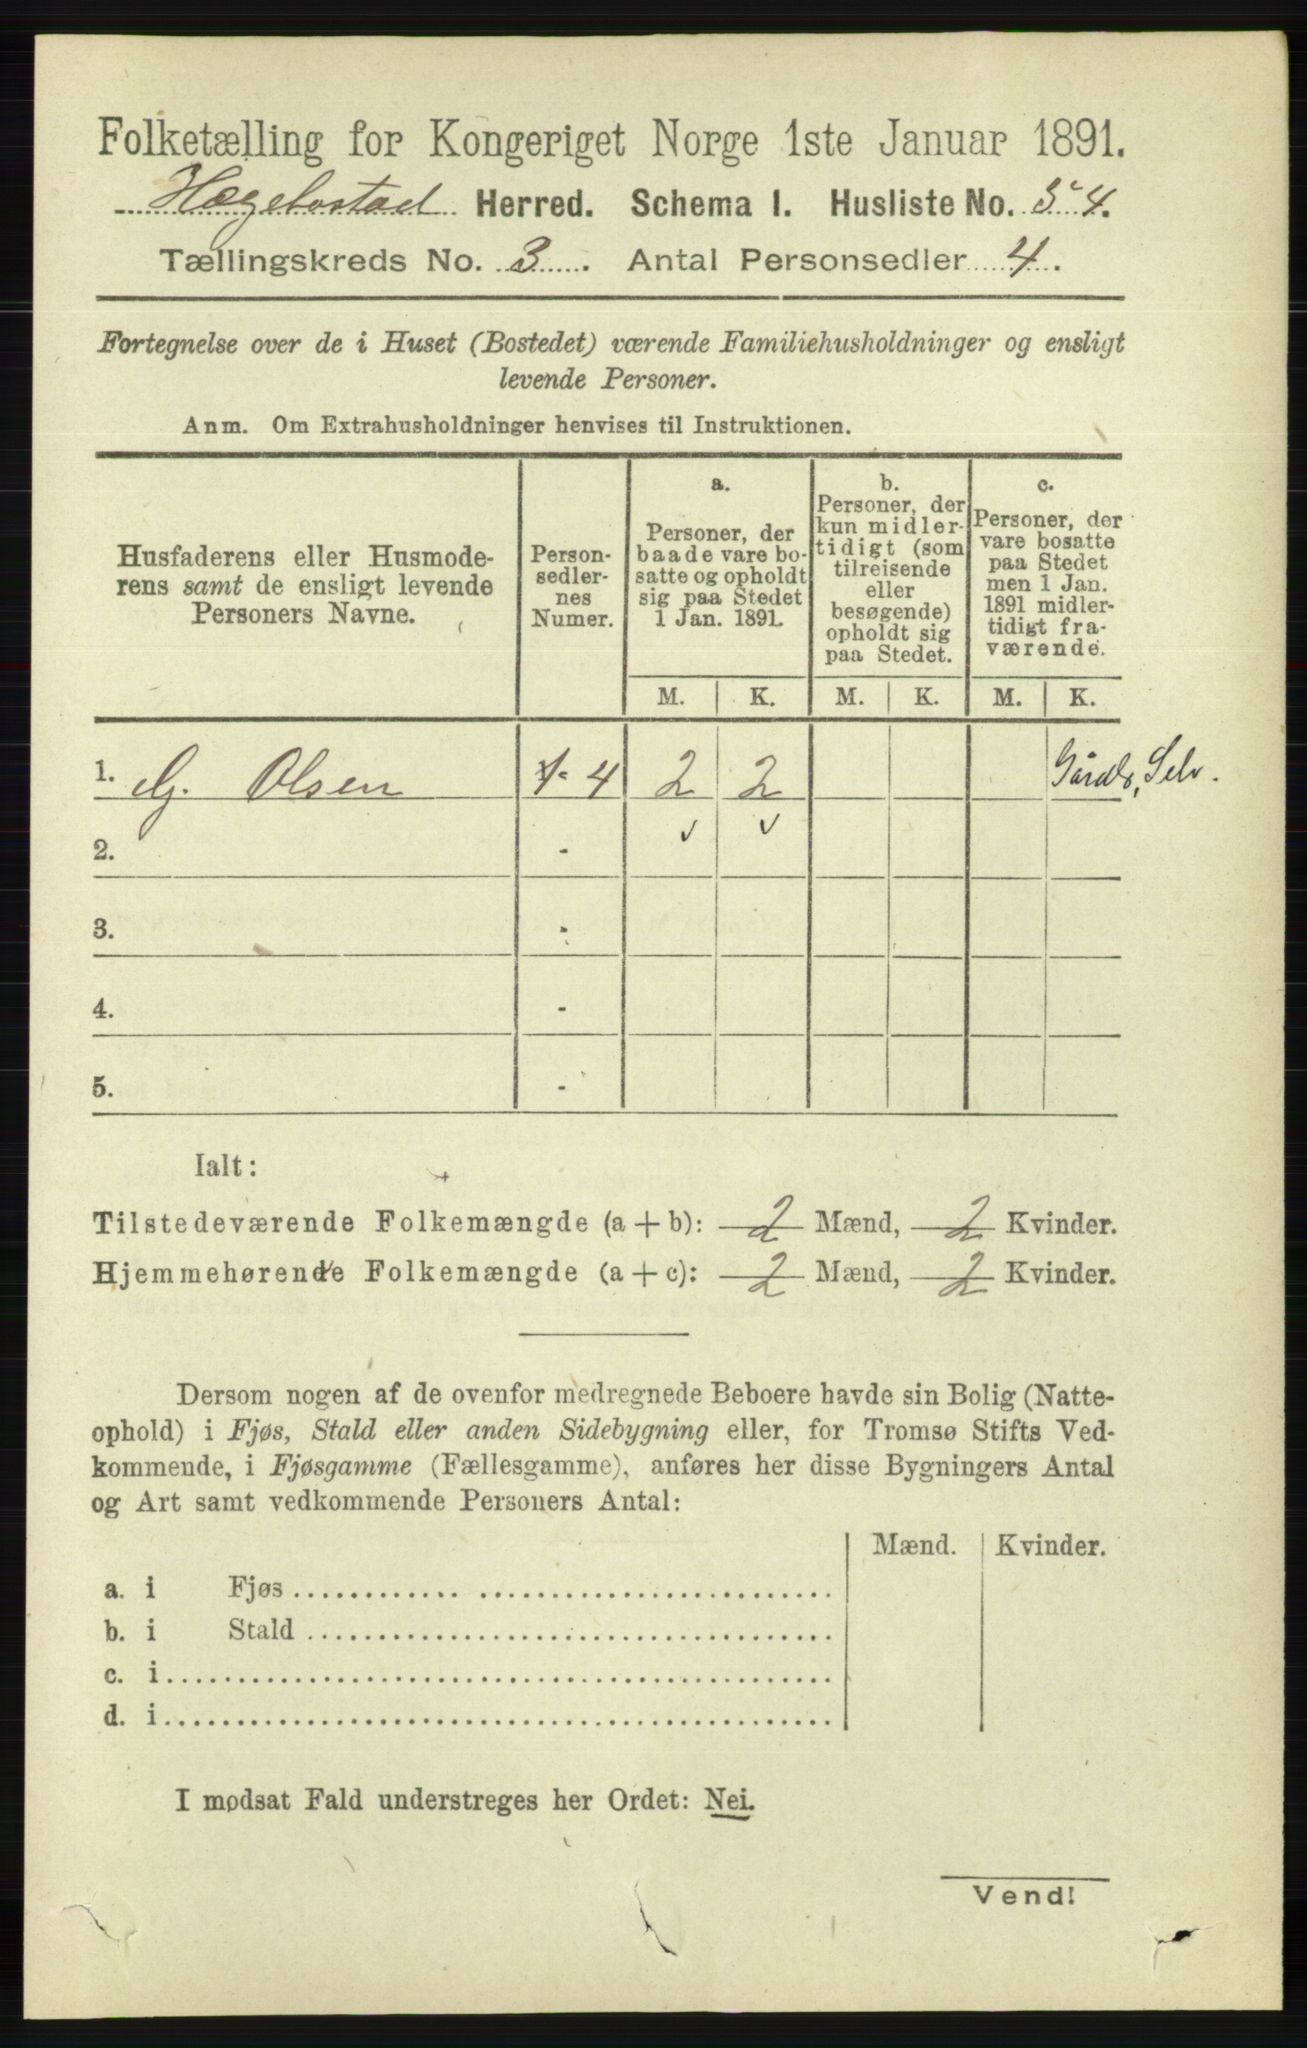 Folketælling for Kongeriget Norge 1ste Januar 1891.
Hægebostad Herred. Schema I. Husliste No. 54.
Tællingskreds No. 3. Antal Personsedler 4.
Fortegnelse over de i Huset (Bostedet) værende Familiehusholdninger og ensligt
levende Personer.
Anm. Om Extrahusholdninger henvises til Instruktionen.
Husfaderens eller Husmode-
rens samt de ensligt levende
Personers Navne.
Person-
sedler-
nes
Numer.
a.
Personer, der
baade vare bo-
satte og opholdt
sig paa Stedet
1 Jan. 1891.
b.
Personer, der
kun midler-
tidigt (som
tilreisende
eller
besøgende)
opholdt sig
paa Stedet.
c.
Personer, der
vare bosatte
paa Stedet
men 1 Jan.
1891 midler-
tidigt fra-
værende.
M. K. M. K. M. K.
1. G. Olsen 1-4 2 2 Gårdb, Selv.
2. -
3. -
4. -
5. -
Ialt:
Tilstedeværende Folkemængde (a + b): 2 Mænd, 2 Kvinder.
Hjemmehørende Folkemængde (a + c): 2 Mænd, 2 Kvinder.
Dersom nogen af de ovenfor medregnede Beboere havde sin Bolig (Natte-
ophold) i Fjøs, Stald eller anden Sidebygning eller, for Tromsø Stifts Ved-
kommende, i Fjøsgamme (Fællesgamme), anføres her disse Bygningers Antal
og Art samt vedkommende Personers Antal:
Mænd. Kvinder.
a. i Fjøs
b. i Stald
c. i
d. i
I modsat Fald understreges her Ordet: Nei.
Vend!